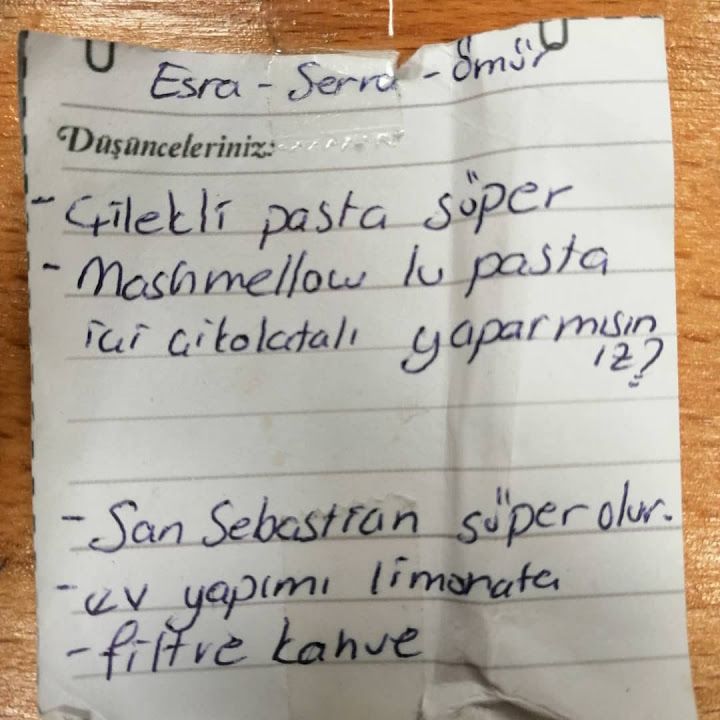 Esra - Serra - Ömür
Düşünceleriniz:
- Çilekli pasta süper
- Mashmellow lu pasta
içi çikolatalı yaparmısın
ız?
- San Sebastian süper olur.
- ev yapımı limonata
- filtre kahve